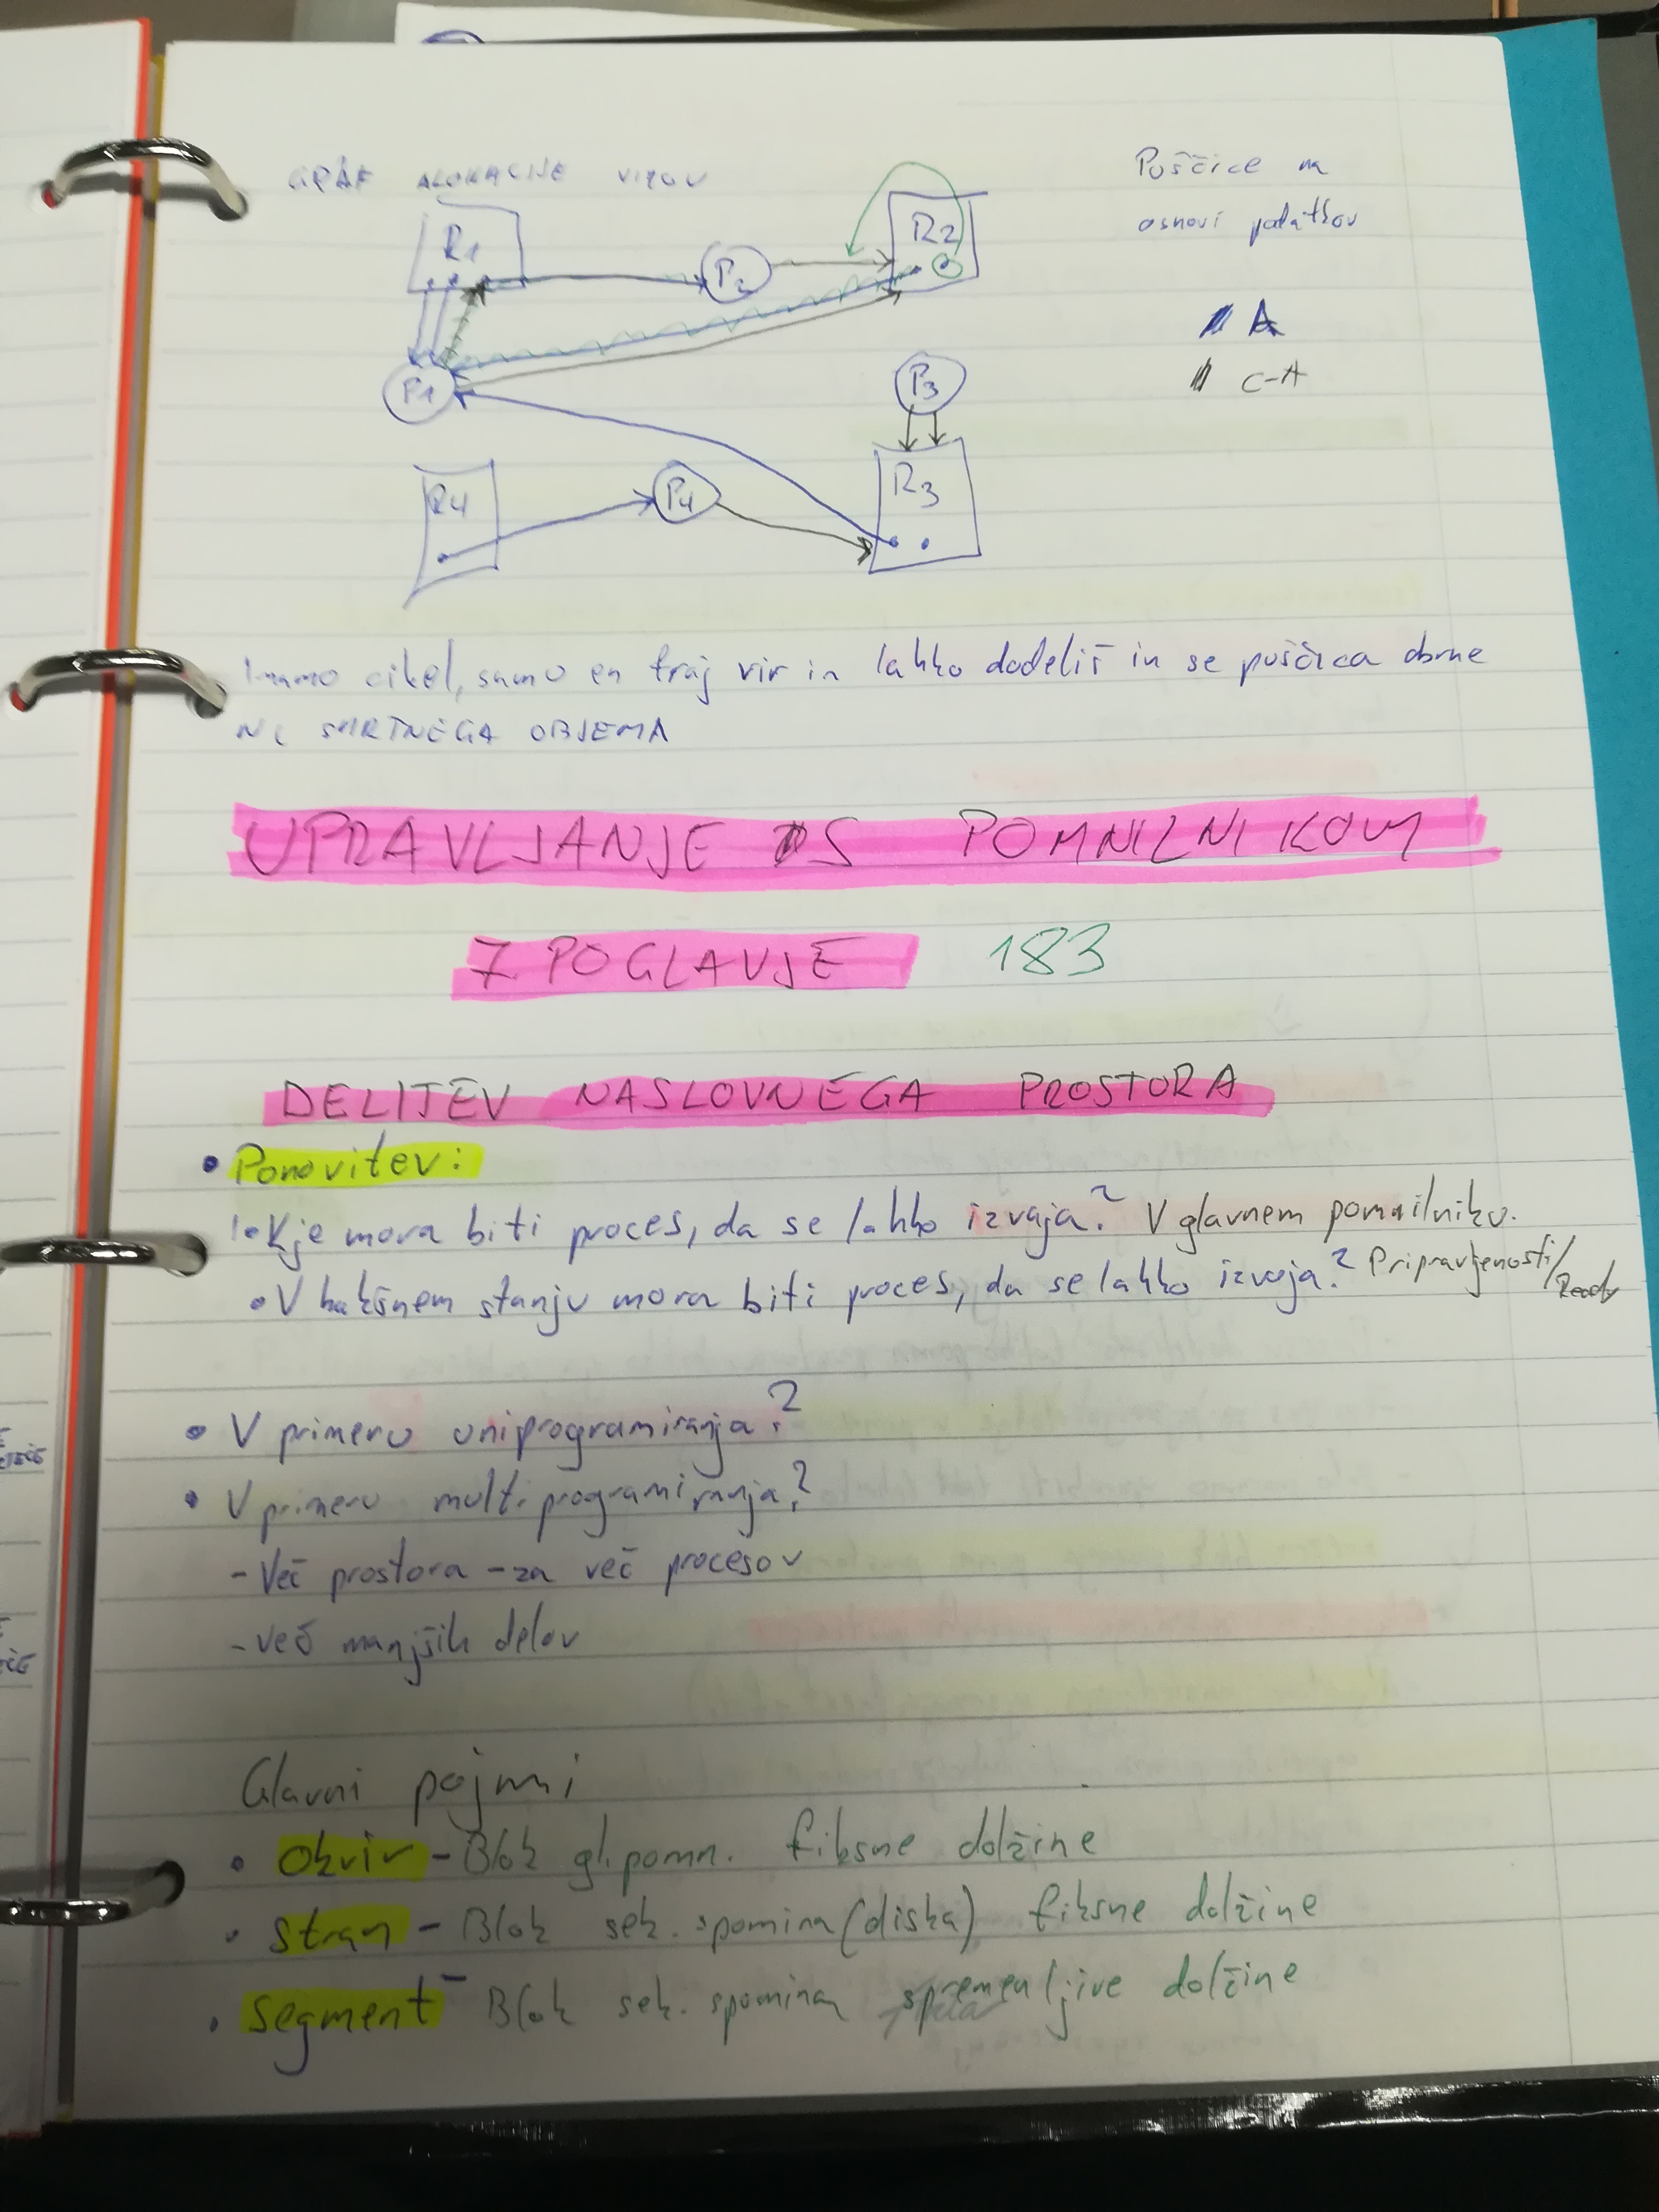 GRAF ALOKACIJE VIROV
Puščice na
osnovi podatkov
R1
P2
R2
A
C-A
P1
P3
R4
P4
R3
Imamo cikel, samo en traj vir in lahko dodeliš in se puščica obrne
NI SMRTNEGA OBJEMA
UPRAVLJANJE S POMNILNIKOM
7 POGLAVJE 183
DELITEV NASLOVNEGA PROSTORA
• Ponovitev:
• Kje mora biti proces, da se lahko izvaja? V glavnem pomnilniku.
• V kakšnem stanju mora biti proces, da se lahko izvaja? Pripravljenosti/
Ready
• V primeru uniprogramiranja?
• V primeru multiprogramiranja?
- Več prostora - za več procesov
- več manjših delov
Glavni pojmi
• Okvir - Blok gl. pomn. fiksne dolžine
• Stran - Blok sek. spomina (diska) fiksne dolžine
• Segment - Blok sek. spomina spremenljive dolžine